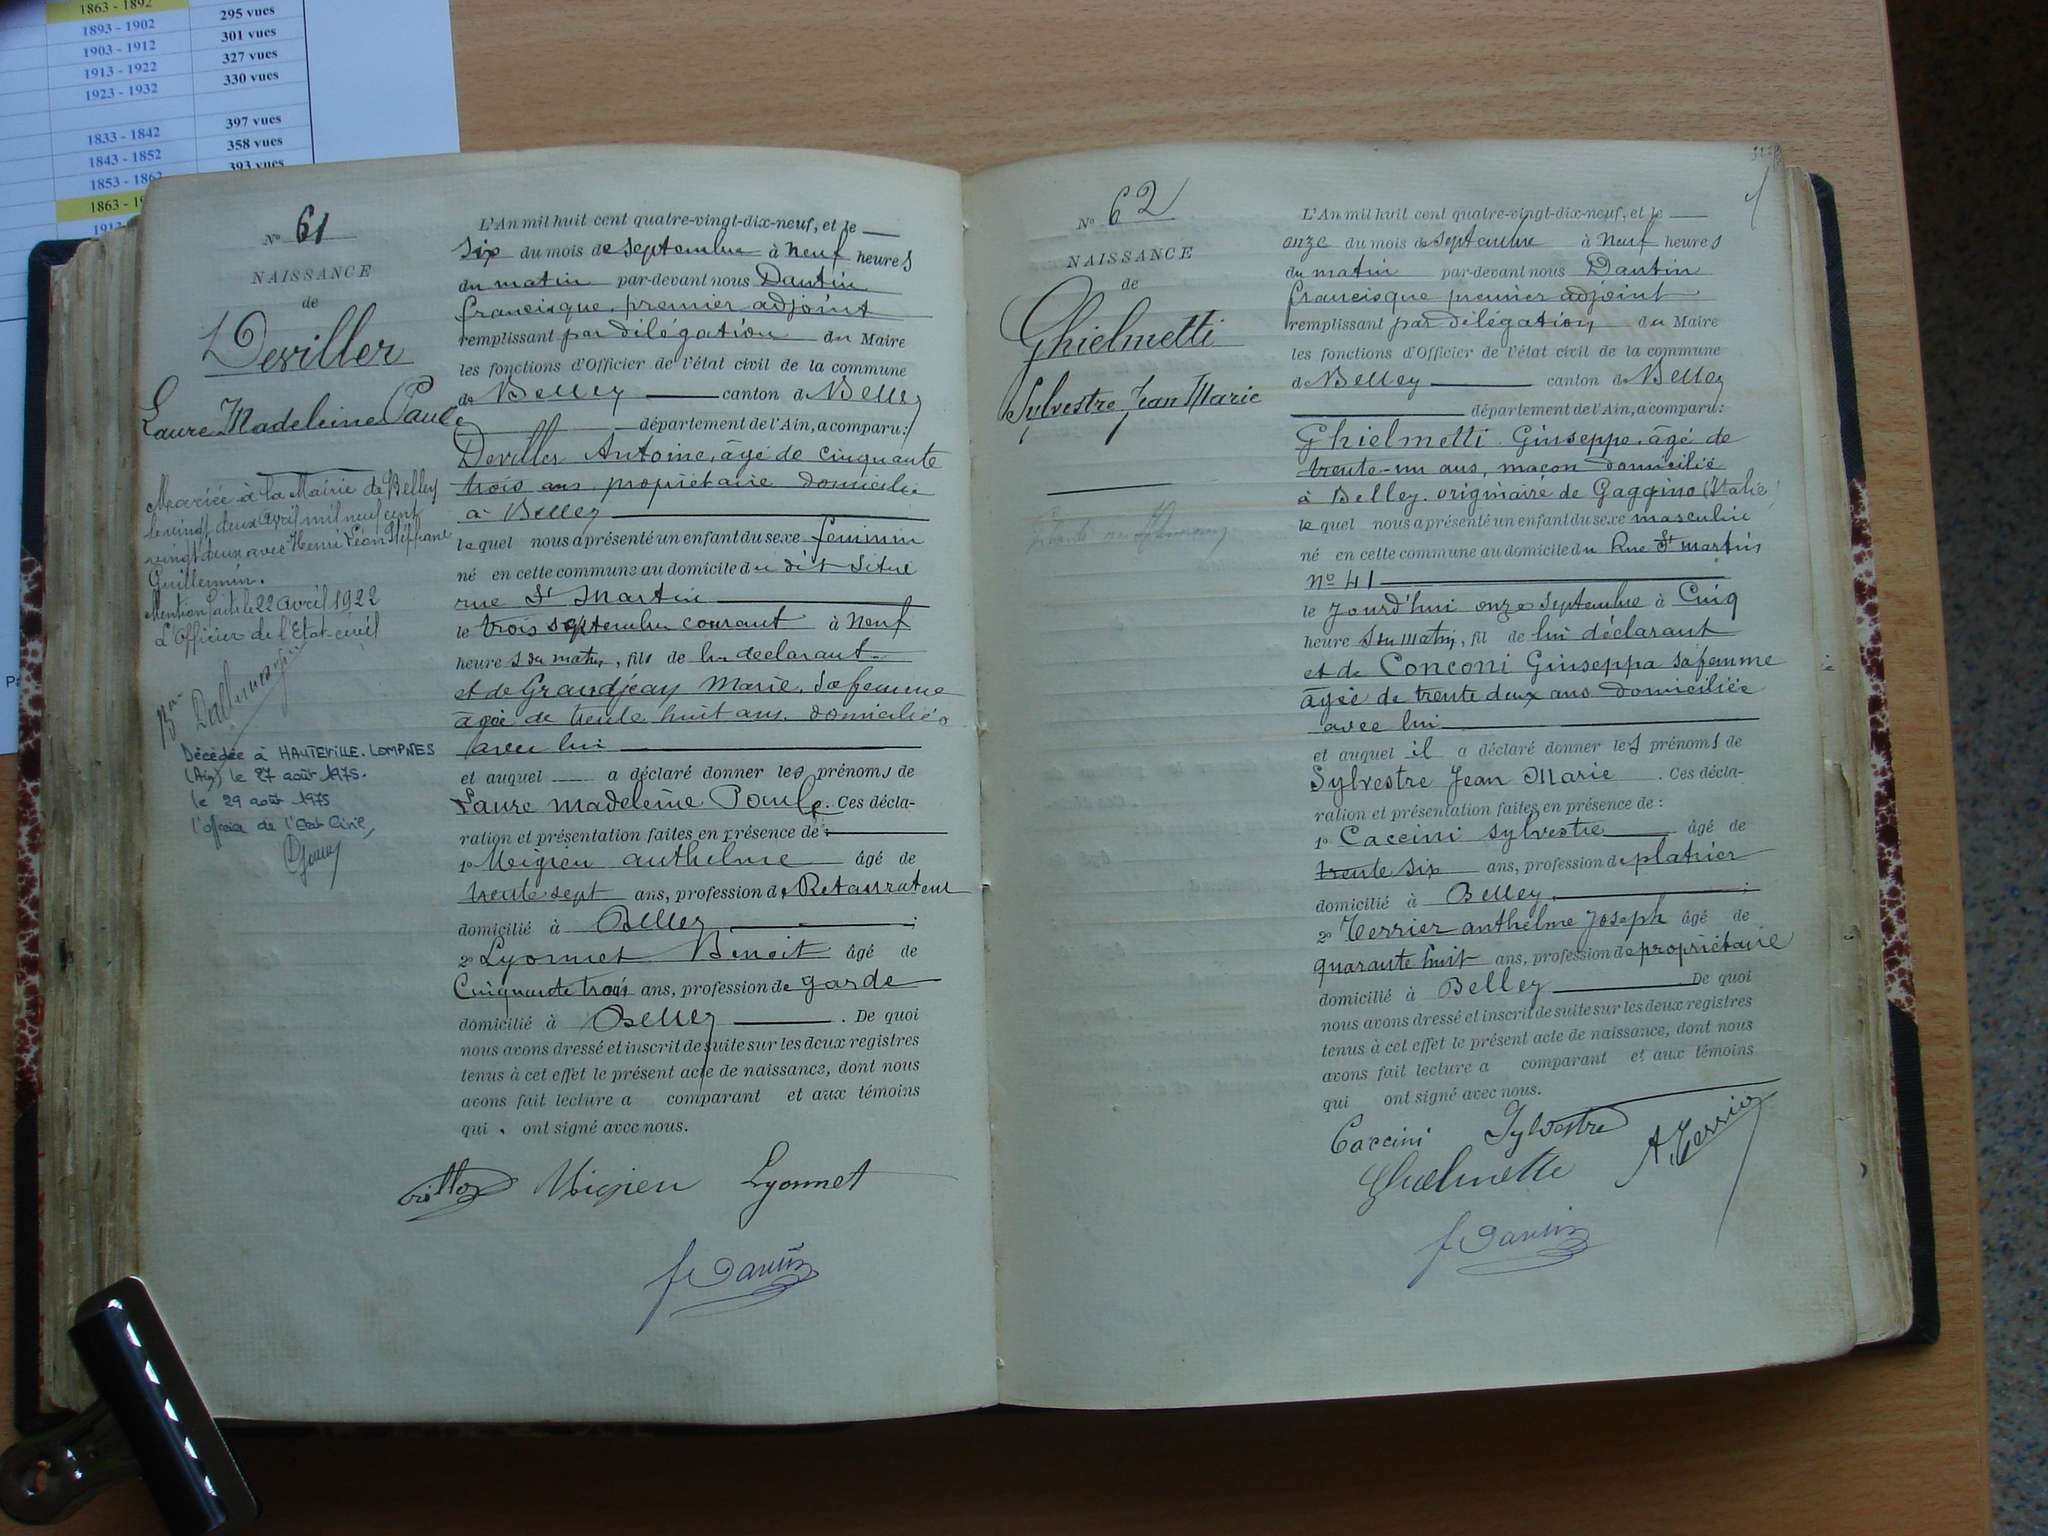 1863 - 1892
1893 - 1902 295 vues
1903 - 1912 301 vues
1913 - 1922 327 vues
1923 - 1932 330 vues
1833 - 1842 397 vues
1843 - 1852 358 vues
1853 - 1862 393 vues
1863 - 1
N° 61
NAISSANCE
de
Deviller
Laure Madeleine Paule
Mariée à la Mairie de Belley
le vingt deux avril mil neuf cent
vingt deux avec Henri Léon Stéphane
Guillemin.
Mention faite le 22 avril 1922
L'Officier de l'Etat-civil
Décédée à HAUTEVILLE-LOMPNES
(Ain) le 27 août 1975.
le 29 août 1975
l'officier de l'Etat Civil,
L'An mil huit cent quatre-vingt-dix-neuf, et le
six du mois de septembre à neuf heures
du matin par-devant nous Dantin
francisque, premier adjoint
remplissant par délégation du Maire
les fonctions d'Officier de l'état civil de la commune
de Belley canton de Belley
département de l'Ain, a comparu:
Deviller Antoine, âgé de cinquante
trois ans, propriétaire domicilié
à Belley
lequel nous a présenté un enfant du sexe feminin
né en cette commune au domicile du dit situé
rue St Martin
le trois septembre courant à neuf
heures du matin, fils de lui declarant
et de Grandjean Marie, sa femme
agée de trente huit ans, domiciliée
avec lui
et auquel a déclaré donner les prénoms de
Laure Madeleine Paule. Ces décla-
ration et présentation faites en présence de :
1° Migieu anthelme âgé de
trente sept ans, profession de Retaurateur
domicilié à Belley ;
2° Lyonnet Benoit âgé de
Cinquante trois ans, profession de garde
domicilié à Belley . De quoi
nous avons dressé et inscrit de suite sur les deux registres
tenus à cet effet le présent acte de naissance, dont nous
avons fait lecture a comparant et aux témoins
qui ont signé avec nous.
Migieu Lyonnet
f Dantin
N° 62
NAISSANCE
de
Ghielmetti
Sylvestre Jean Marie
L'An mil huit cent quatre-vingt-dix-neuf, et le
onze du mois de septembre à neuf heures
du matin par-devant nous Dantin
francisque premier adjoint
remplissant par délégation du Maire
les fonctions d'Officier de l'état civil de la commune
de Belley canton de Belley
département de l'Ain, a comparu:
Ghielmetti Giuseppe, âgé de
trente-un ans, maçon domicilié
à Belley, originaire de Gaggino (Italie)
lequel nous a présenté un enfant du sexe masculin
né en cette commune au domicile du Rue St martin
N° 41
le jourd'hui onze septembre à Cinq
heures du matin, fils de lui déclarant
et de Conconi Giuseppa sa femme
âgée de trente deux ans domiciliée
avec lui
et auquel il a déclaré donner les prénoms de
Sylvestre Jean Marie . Ces décla-
ration et présentation faites en présence de :
1° Caccini Sylvestre âgé de
trente six ans, profession de platrier
domicilié à Belley ;
2° Terrier anthelme Joseph âgé de
quarante huit ans, profession de propriétaire
domicilié à Belley . De quoi
nous avons dressé et inscrit de suite sur les deux registres
tenus à cet effet le présent acte de naissance, dont nous
avons fait lecture a comparant et aux témoins
qui ont signé avec nous.
Caccini Sylvestre A. Terrier
Ghielmetti
f Dantin